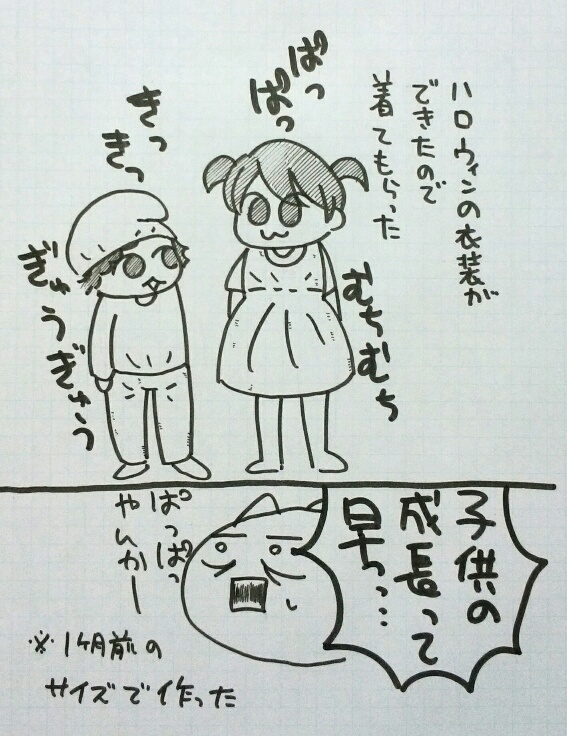 ハロウィンの衣装が
できたので
着てもらった
ぱっ
ぱっ
むちむち
きっ
きっ
ぎゅうぎゅう
子供の
成長って
早っ…
ぱっぱっ
やんかー
※1ヶ月前の
サイズで作った